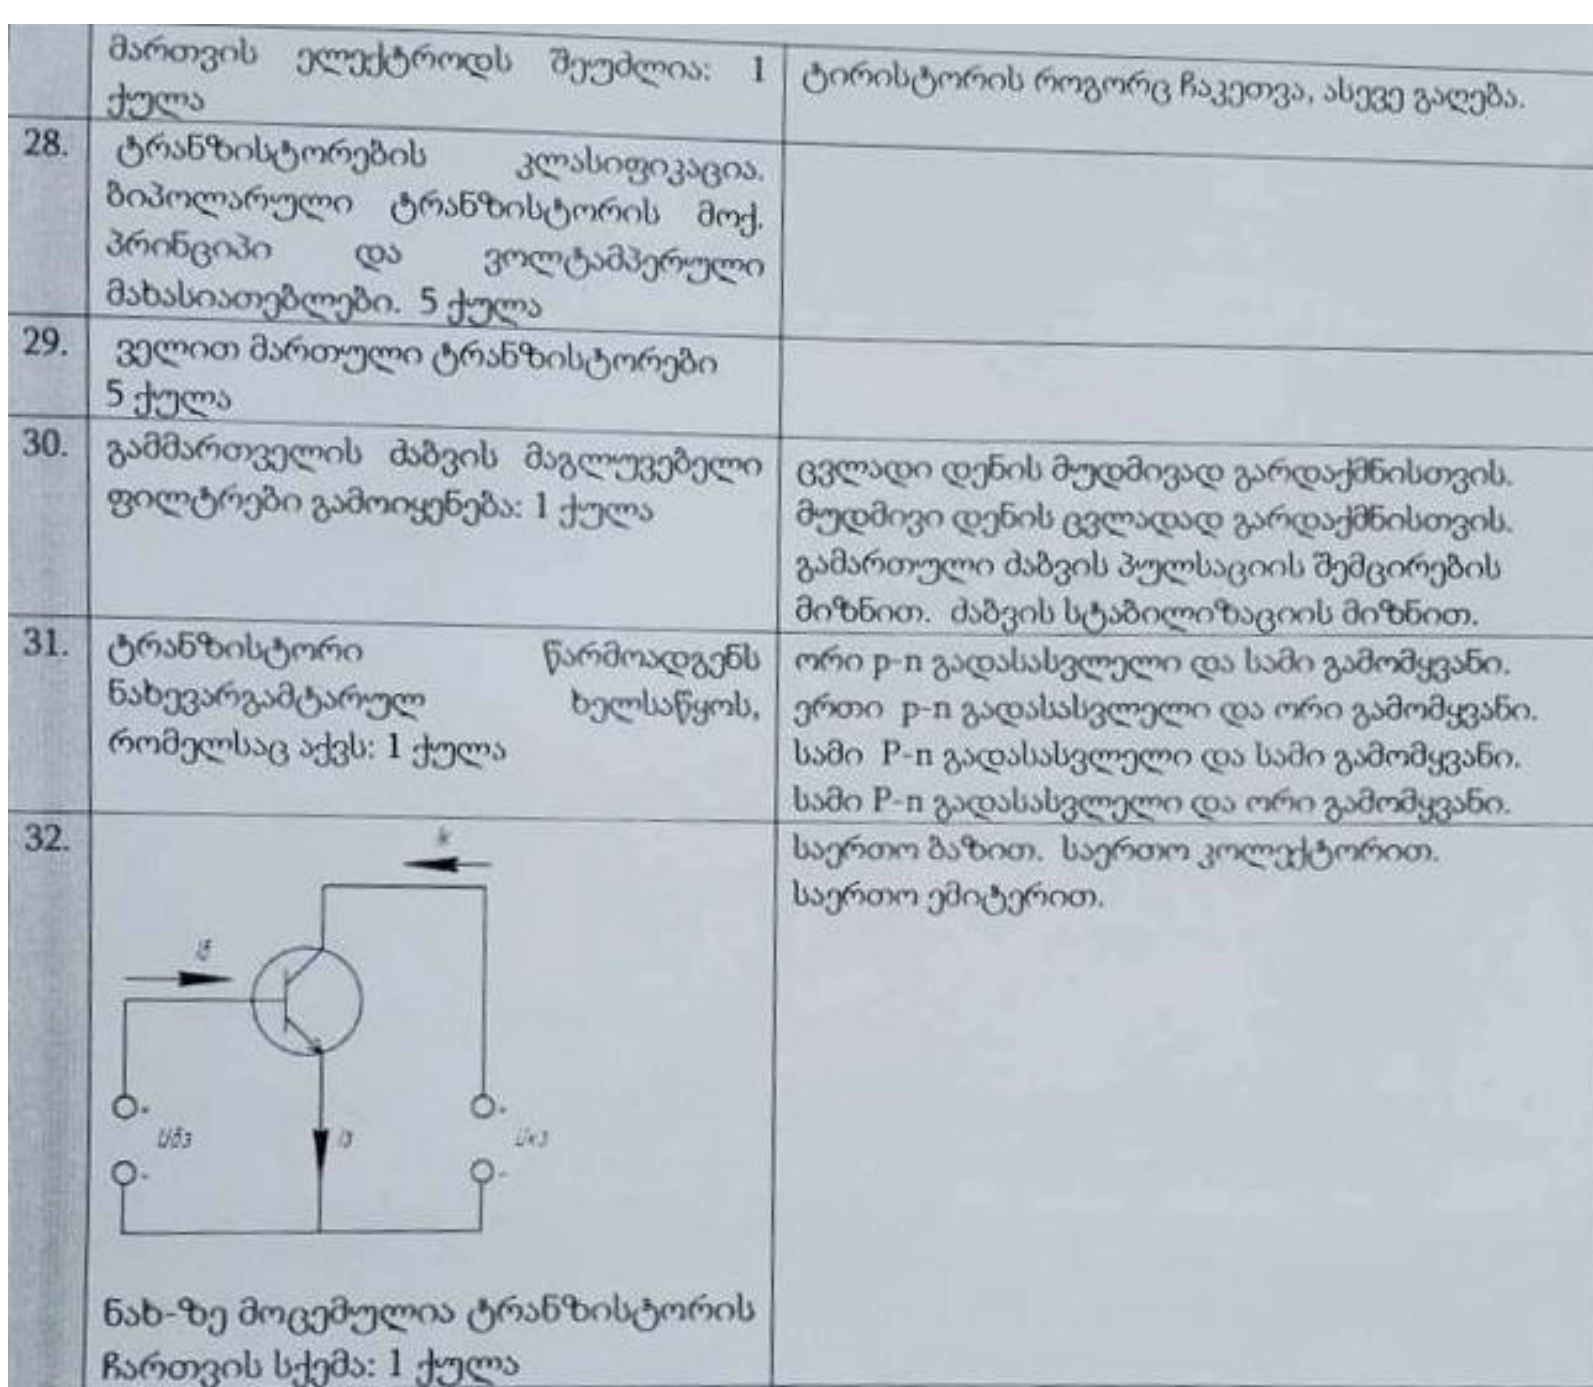 მართვის ელექტროდს შეუძლია: 1
ქულა
ტირისტორის როგორც ჩაკეთვა, ასევე გაღება.
28.
ტრანზისტორების კლასიფიკაცია.
ბიპოლარული ტრანზისტორის მოქ.
პრინციპი და ვოლტამპერული
მახასიათებლები. 5 ქულა
29.
ველით მართული ტრანზისტორები
5 ქულა
30.
გამმართველის ძაბვის მაგლუვებელი
ფილტრები გამოიყენება: 1 ქულა
ცვლადი დენის მუდმივად გარდაქმნისთვის.
მუდმივი დენის ცვლადად გარდაქმნისთვის.
გამართული ძაბვის პულსაციის შემცირების
მიზნით. ძაბვის სტაბილიზაციის მიზნით.
31.
ტრანზისტორი წარმოადგენს
ნახევარგამტარულ ხელსაწყოს,
რომელსაც აქვს: 1 ქულა
ორი p-n გადასასვლელი და სამი გამომყვანი.
ერთი p-n გადასასვლელი და ორი გამომყვანი.
სამი P-n გადასასვლელი და სამი გამომყვანი.
სამი P-n გადასასვლელი და ორი გამომყვანი.
32.
Iб
Uбэ
Iэ
Uкэ
ნახ-ზე მოცემულია ტრანზისტორის
ჩართვის სქემა: 1 ქულა
საერთო ბაზით. საერთო კოლექტორით.
საერთო ემიტერით.